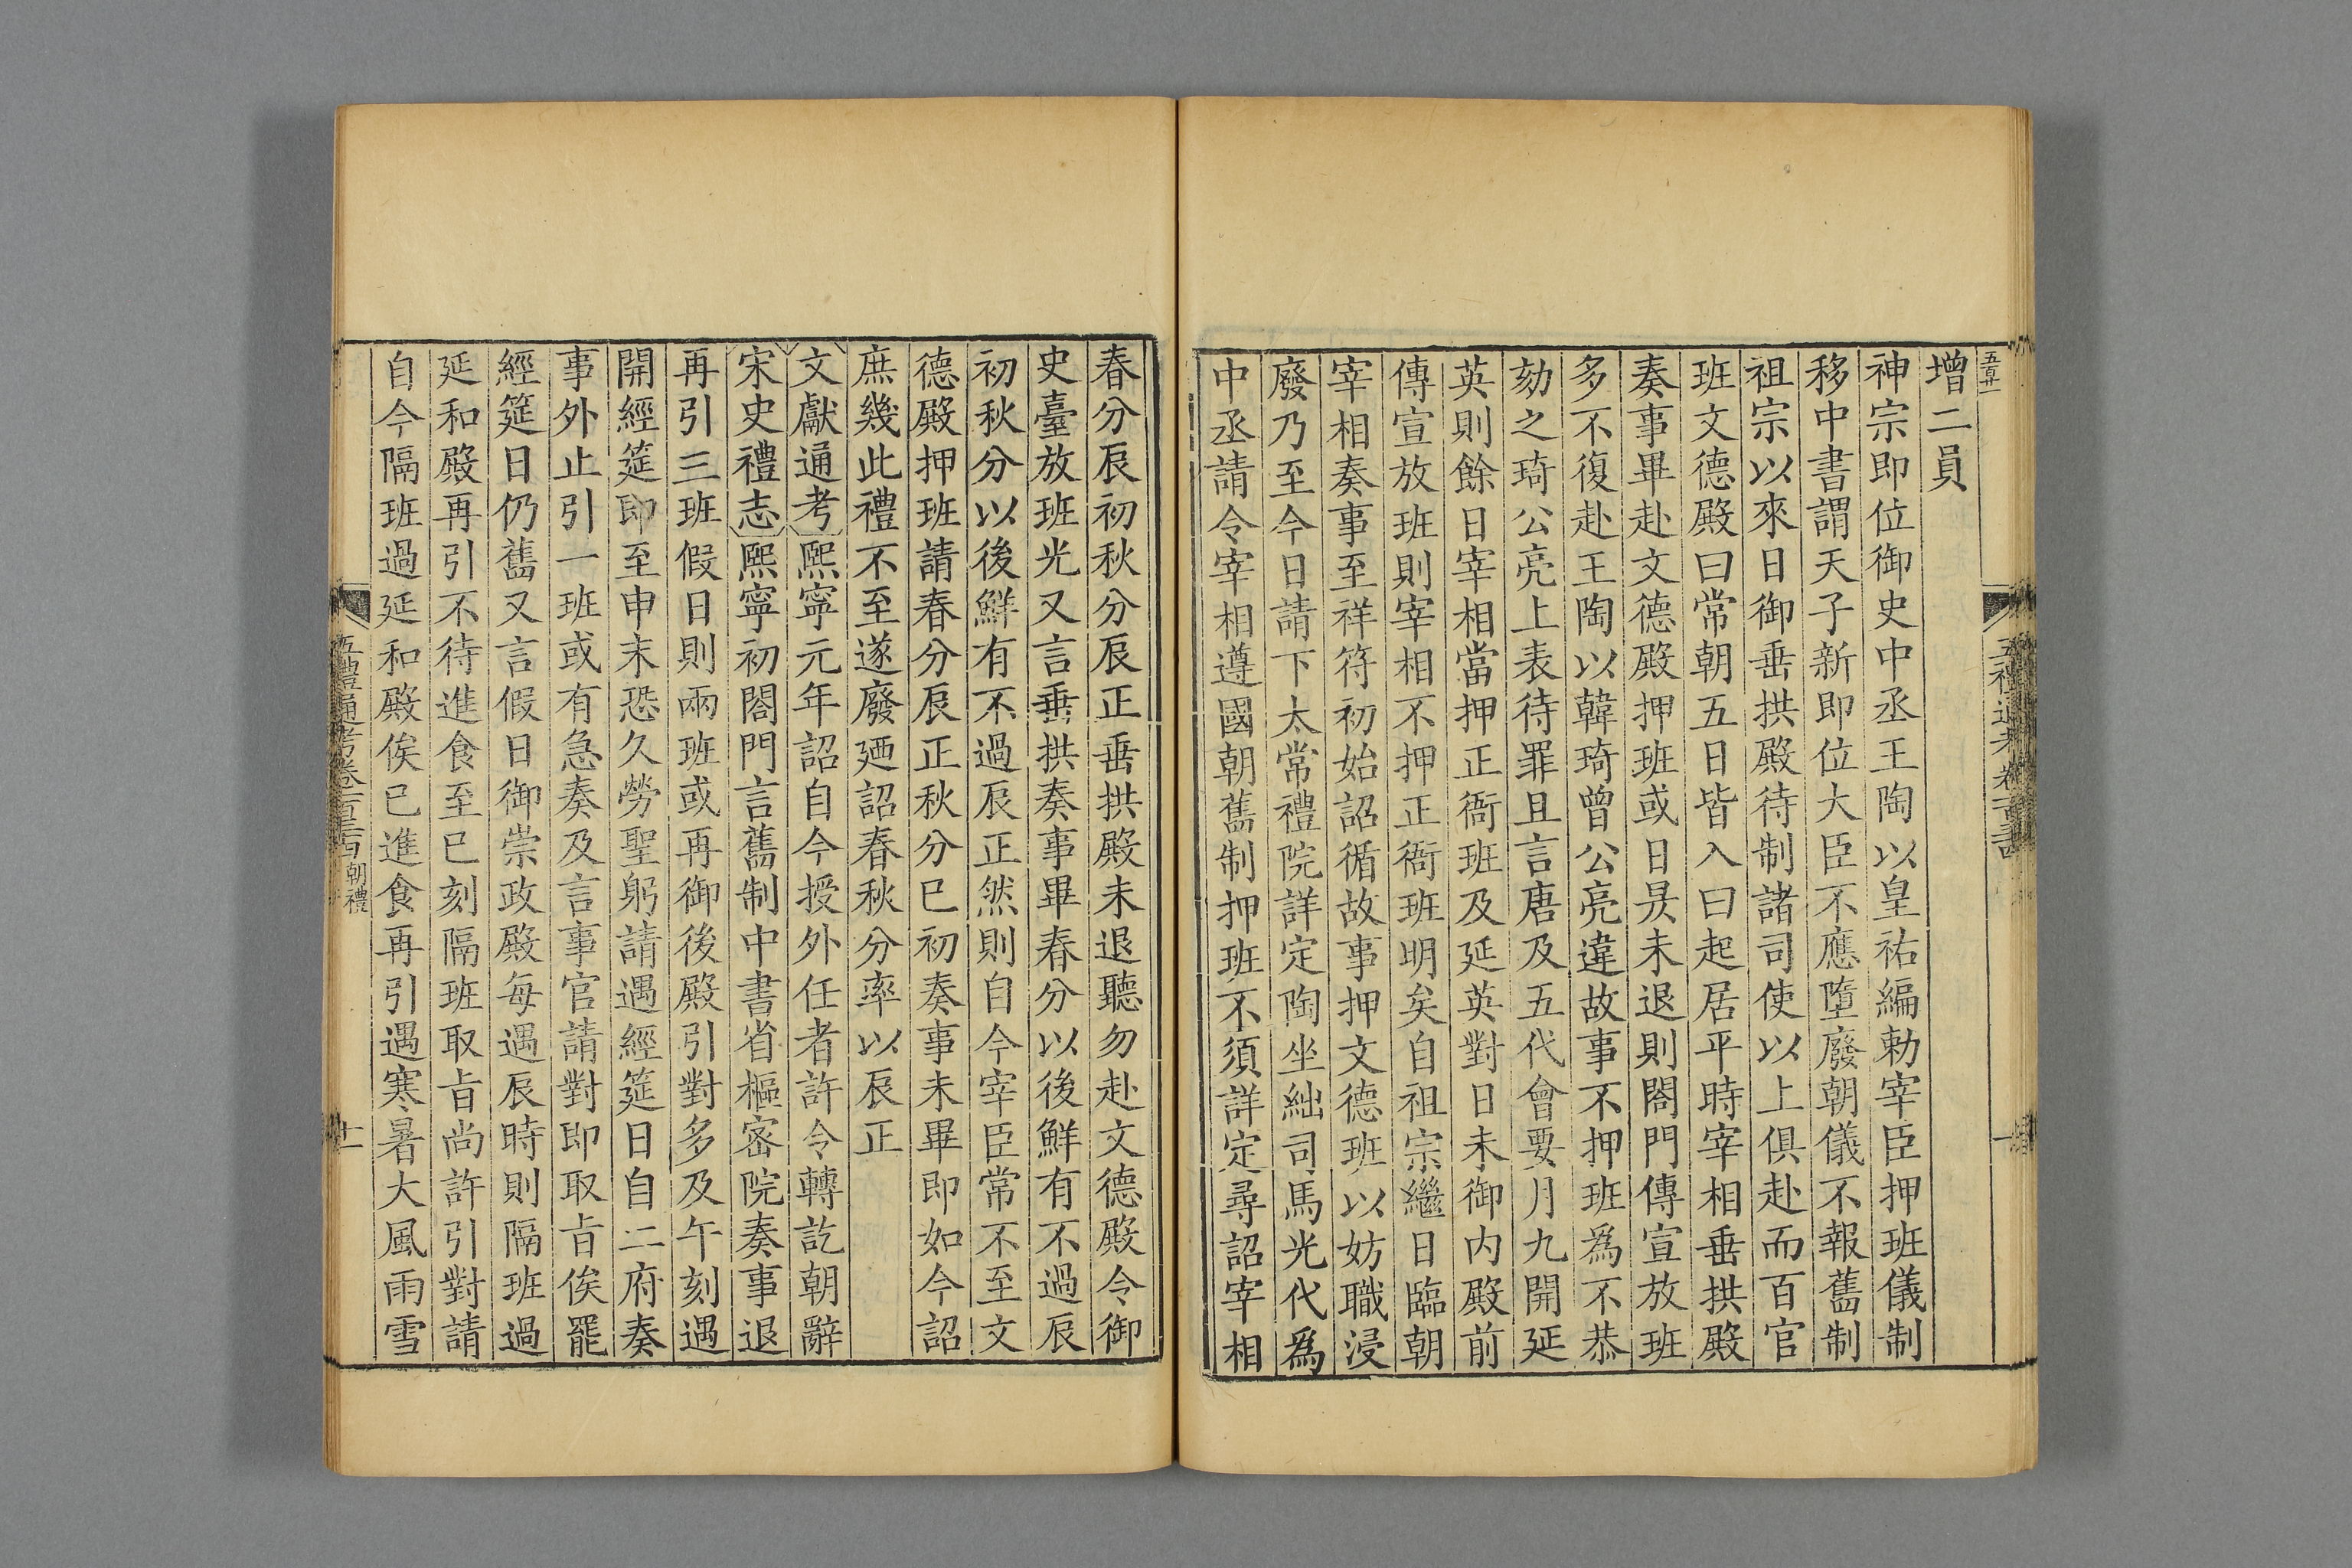 增二員
神宗即位御史中丞王陶以皇祐編勅宰臣押班儀制
移中書謂天子新即位大臣不應墮廢朝儀不報舊制
祖宗以來日御垂拱殿待制諸司使以上俱赴而百官
班文德殿曰常朝五日皆入曰起居平時宰相垂拱殿
奏事畢赴文德殿押班或日昃未退則閤門傳宣放班
多不復赴王陶以韓琦曾公亮違故事不押班爲不恭
劾之琦公亮上表待罪且言唐及五代會要月九開延
英則餘日宰相當押正衙班及延英對日未御内殿前
傳宣放班則宰相不押正衙班明矣自祖宗繼日臨朝
宰相奏事至祥符初始詔循故事押文德班以妨職浸
廢乃至今日請下太常禮院詳定陶坐絀司馬光代爲
中丞請令宰相遵國朝舊制押班不須詳定尋詔宰相
春分辰初秋分辰正垂拱殿未退聽勿赴文德殿令御
史臺放班光又言垂拱奏事畢春分以後鮮有不過辰
初秋分以後鮮有不過辰正然則自今宰臣常不至文
德殿押班請春分辰正秋分巳初奏事未畢即如今詔
庶幾此禮不至遂廢廼詔春秋分率以辰正
文獻通考熙寧元年詔自今授外任者許令轉訖朝辭
宋史禮志熙寧初閤門言舊制中書省樞密院奏事退
再引三班假日則兩班或再御後殿引對多及午刻遇
開經筵即至申末恐久勞聖躬請遇經筵日自二府奏
事外止引一班或有急奏及言事官請對即取旨俟罷
經筵日仍舊又言假日御崇政殿每遇辰時則隔班過
延和殿再引不待進食至巳刻隔班取旨尚許引對請
自今隔班過延和殿俟已進食再引遇寒暑大風雨雪
五禮通考卷一百三十四 朝禮
十一